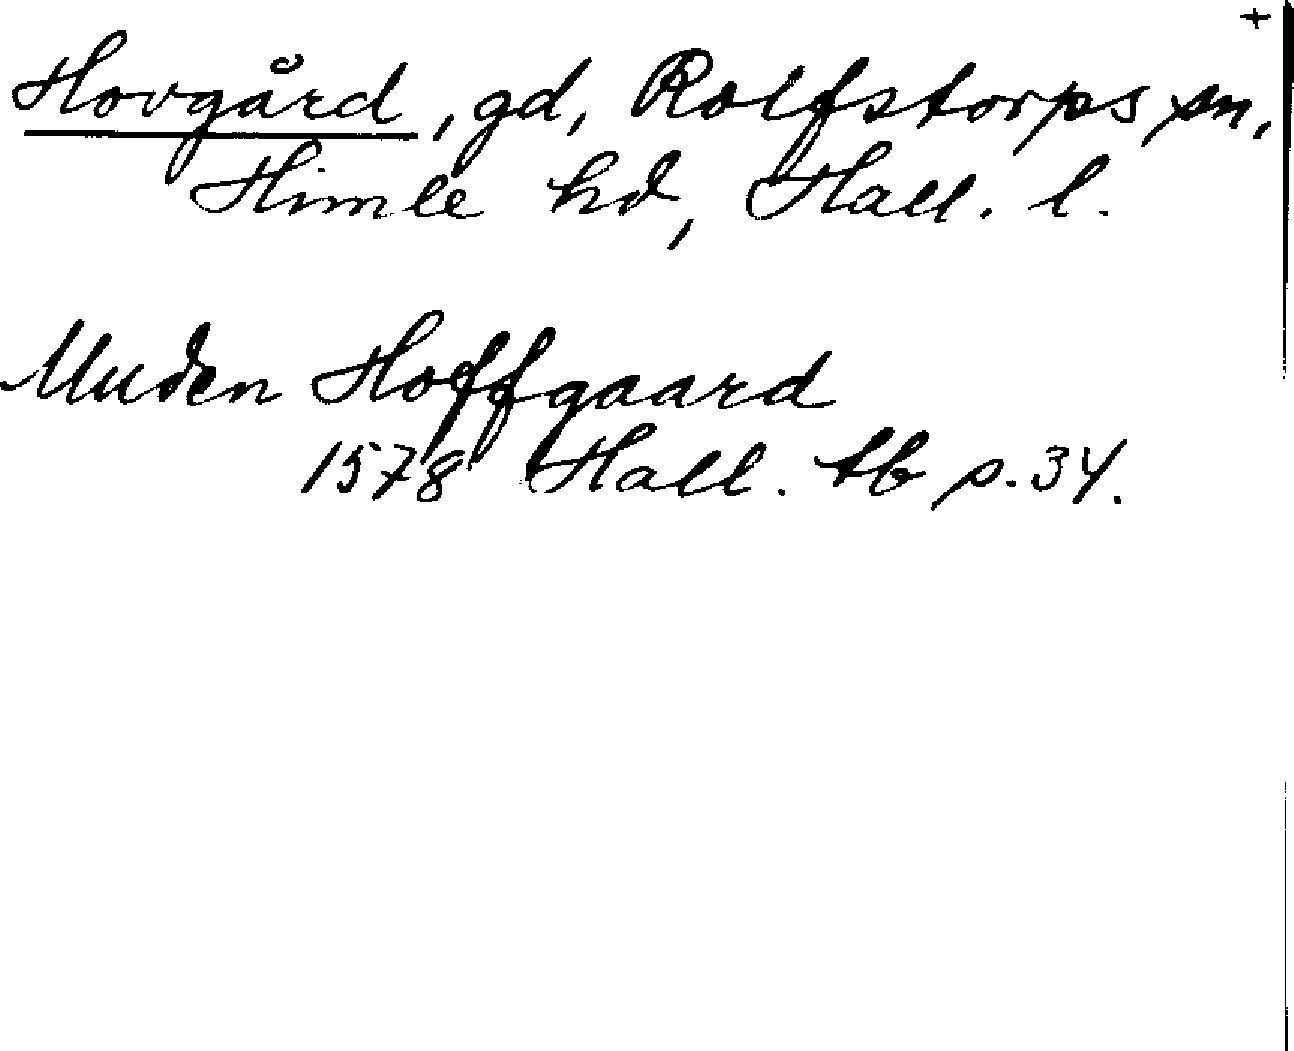 +
Hovgård, gd, Rolfstorps sn,
Himle hd, Hall. l.
Muden Hoffgaard
1578 Hall. tb s. 34.